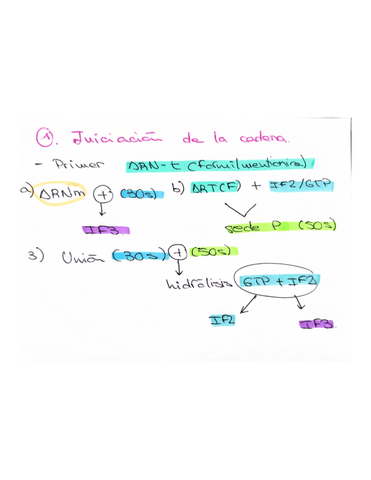 ①. Iniciación de la cadena.
- Primer ARN-t (formilmetionina)
a) ARNm + (30s) b) ARt(F) + IF2/GTP
IF3 sede P (50s)
3) Unión (30s) + (50s)
hidrólisis GTP + IF2
IF2 IF3